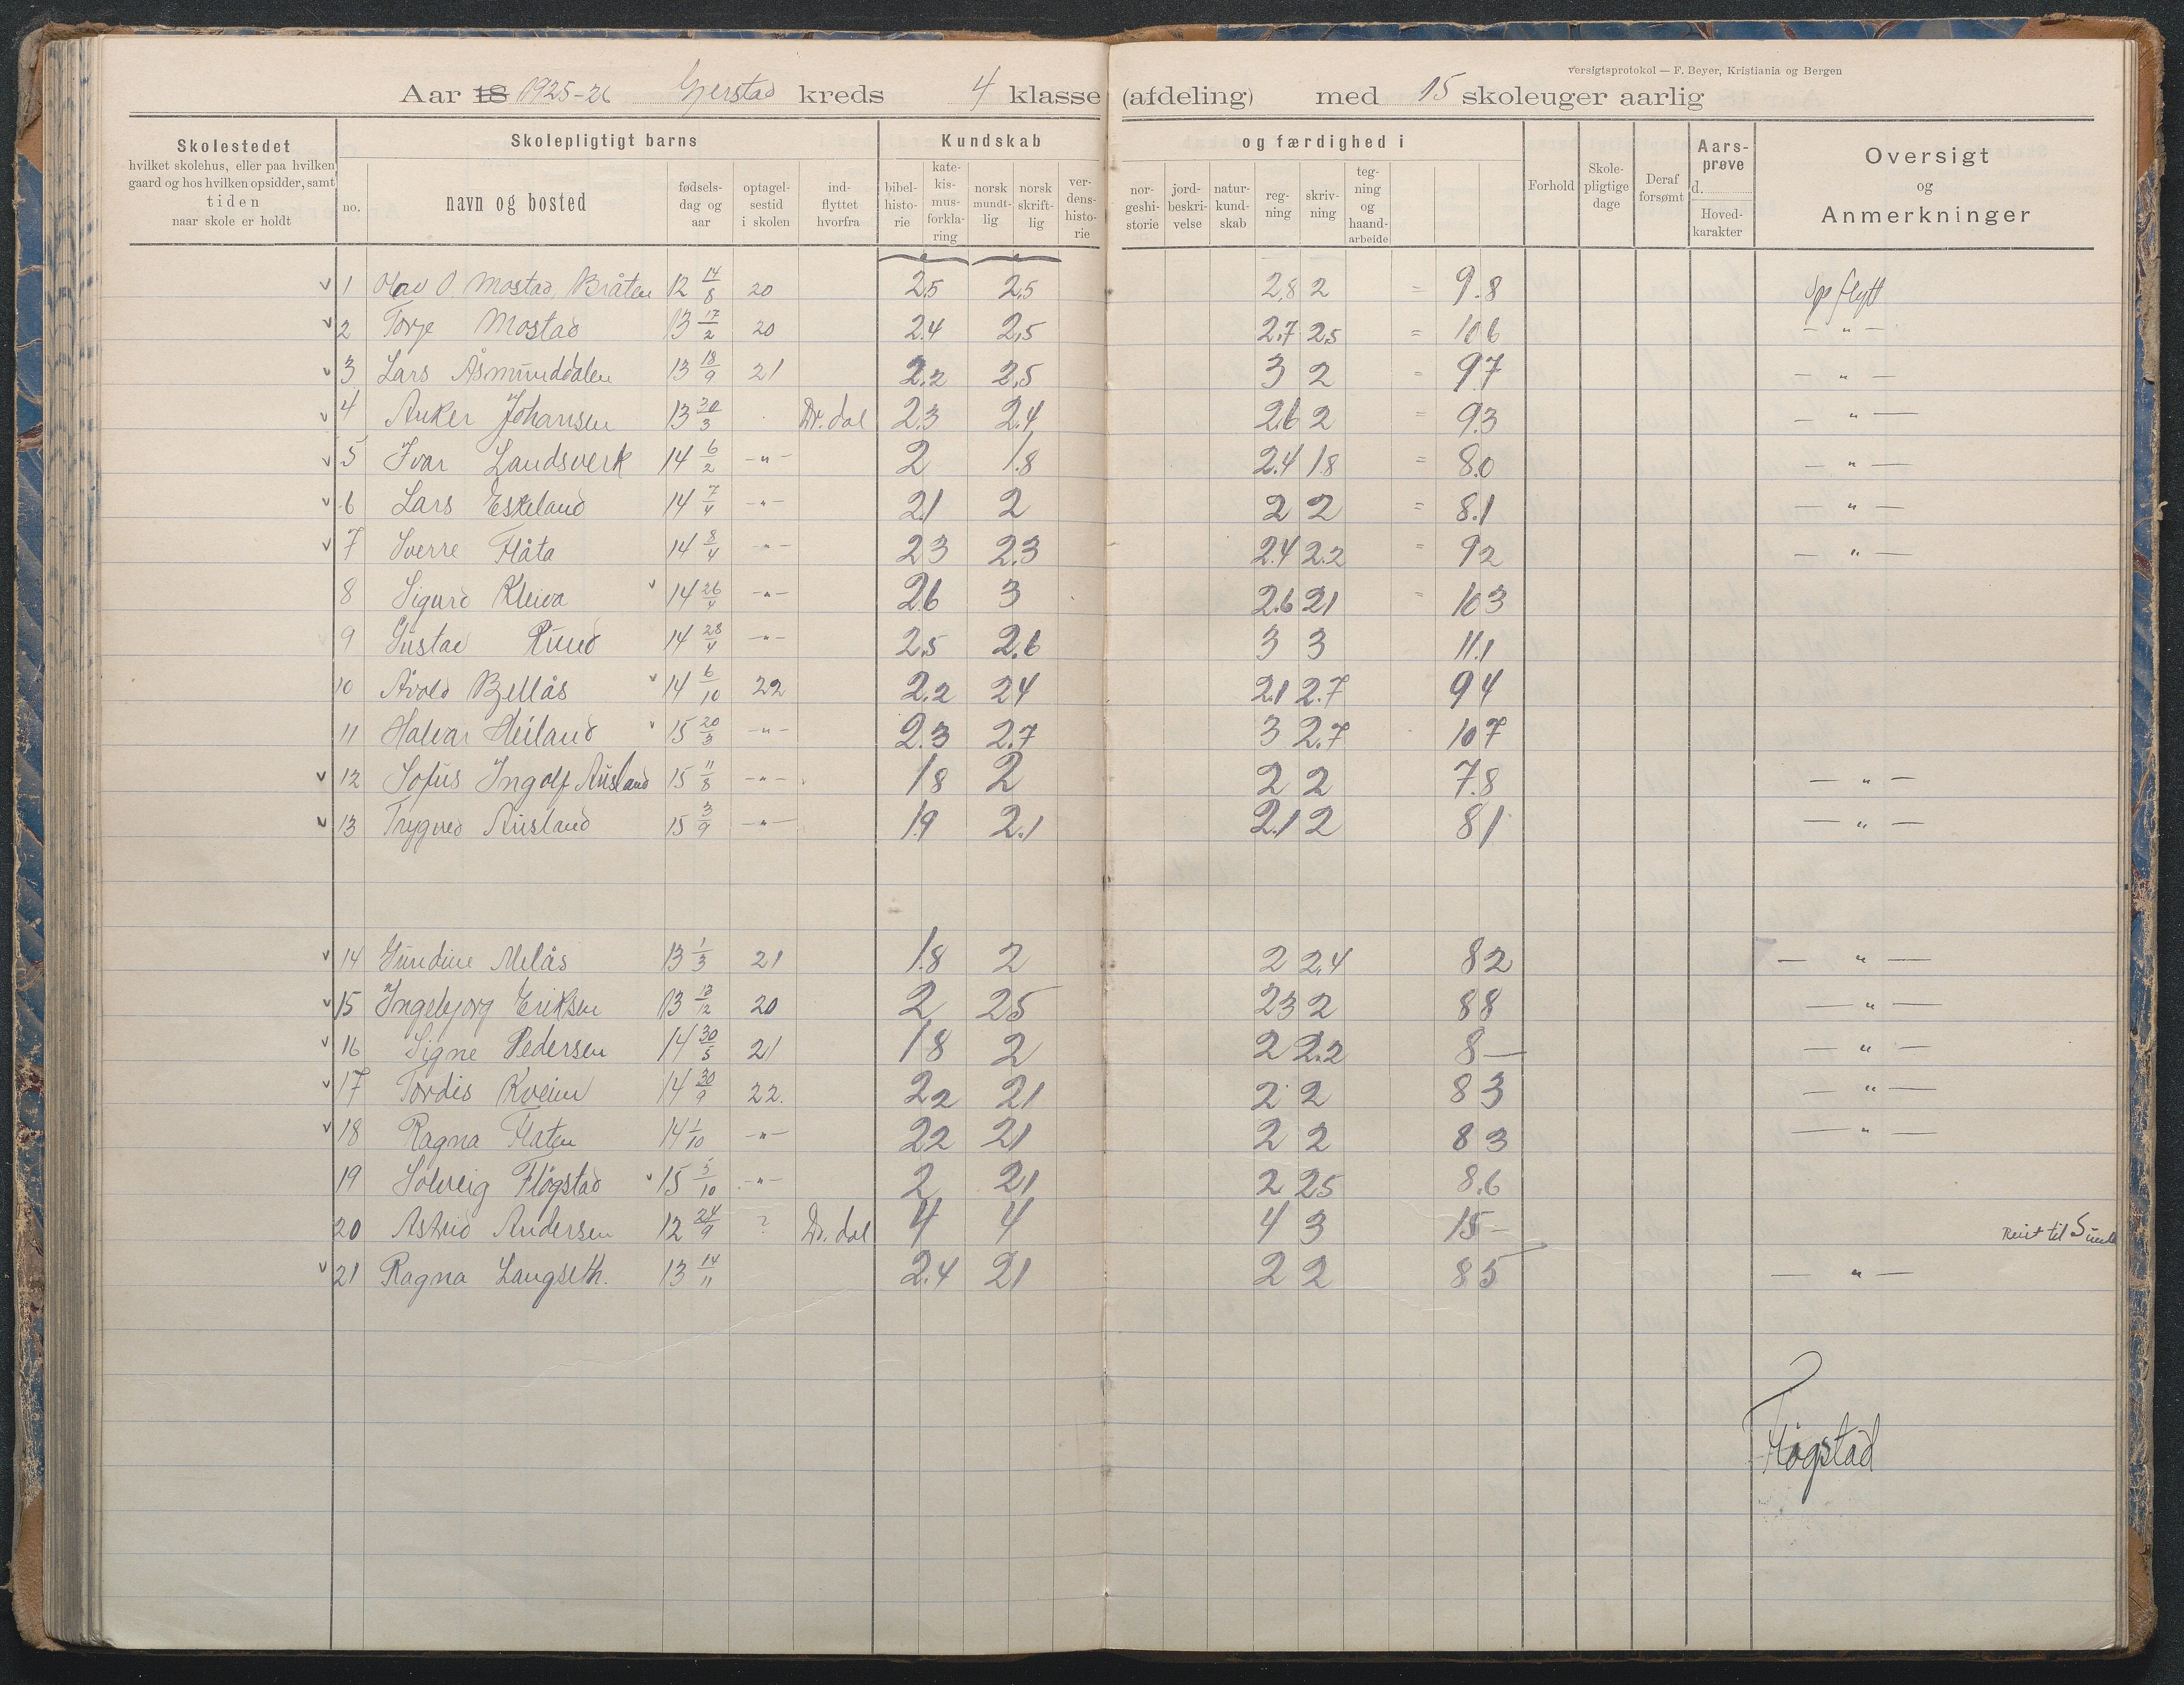 versigtsprotokol — F. Beyer, Kristiania og Bergen
Aar 18 1925-26 Gjerstad kreds 4 klasse (afdeling) med 15 skoleuger aarlig
Skolestedet
hvilket skolehus, eller paa hvilken
gaard og hos hvilken opsidder, samt
tiden
naar skole er holdt
Skolepligtigt barns
no.
navn og bosted
fødsels-
dag og
aar
optagel-
sestid
i skolen
ind-
flyttet
hvorfra
Kundskab
bibel-
histo-
rie
kate-
kis-
mus-
forkla-
ring
norsk
mundt-
lig
norsk
skrift-
lig
ver-
dens-
histo-
rie
og færdighed i
nor-
geshi-
storie
jord-
beskri-
velse
natur-
kund-
skab
reg-
ning
skriv-
ning
teg-
ning
og
haand-
arbeide
Forhold
Skole-
pligtige
dage
Deraf
forsømt
Aars-
prøve
d.
Hoved-
karakter
Oversigt
og
Anmerkninger
v 1 Olav O. Mostad, Bråten 12 14/8 20 2.5 2.5 2.8 2 = 9.8 Opflytt
v 2 Torje Mostad 13 17/2 20 2.4 2,5 2.7 2.5 = 10 6 — " —
v 3 Lars Åsmunddalen 13 18/9 21 2.2 2.5 3 2 = 9.7 — " —
v 4 Anker Johansen 13 30/3 Dr. dal 2.3 2.4 2.6 2 = 9.3 — " —
v 5 Ivar Landsverk 14 6/2 — " — 2 1.8 2.4 1.8 = 8.0 — " —
v 6 Lars Eskeland 14 7/4 — " — 2.1 2 2 2 = 8.1 — " —
v 7 Sverre Flåta 14 8/4 — " — 2 3 2.3 2.4 2.2 = 9 2 — " —
8 Sigurd Kleiva v 14 26/4 — " — 2.6 3 2.6 2 1 = 10 3
9 Gustav Ruud 14 28/4 — " — 2.5 2.6 3 3 11.1
10 Åvold Bjellås v 14 6/10 22 2.2 2 4 2.1 2.7 9 4
11 Halvar Heiland v 15 20/3 — " — 2.3 2.7 3 2.7 10 7
v 12 Sofus Ingolf Ausland 15 11/8 — " — 1 8 2 2 2 7.8 — " —
v 13 Trygved Ausland 15 3/9 — " — 1.9 2.1 2.1 2 8 1 — " —
v 14 Gundine Melås 13 1/3 21 1.8 2 2 2,4 8 2 — " —
v 15 Ingebjorg Eriksen 13 13/12 20 2 2 5 2 3 2 8 8 — " —
v 16 Signe Pedersen 14 30/5 21 1 8 2 2 2.2 8 — — " —
v 17 Tordis Kveim 14 30/9 22. 2 2 2 1 2 2 8 3 — " —
v 18 Ragna Flaten 14 1/10 — " — 2 2 2 1 2 2 8 3 — " —
19 Solveig Fløgstad v 15 5/10 — " — 2 2 1 2 2 5 8.6
20 Astrid Andersen 12 24/9 ? Dr. dal 4 4 4 3 15 — Reist til
v 21 Ragna Langseth. 13 14/11 2.4 2 1 2 2 8 5 — " —
Fløgstad